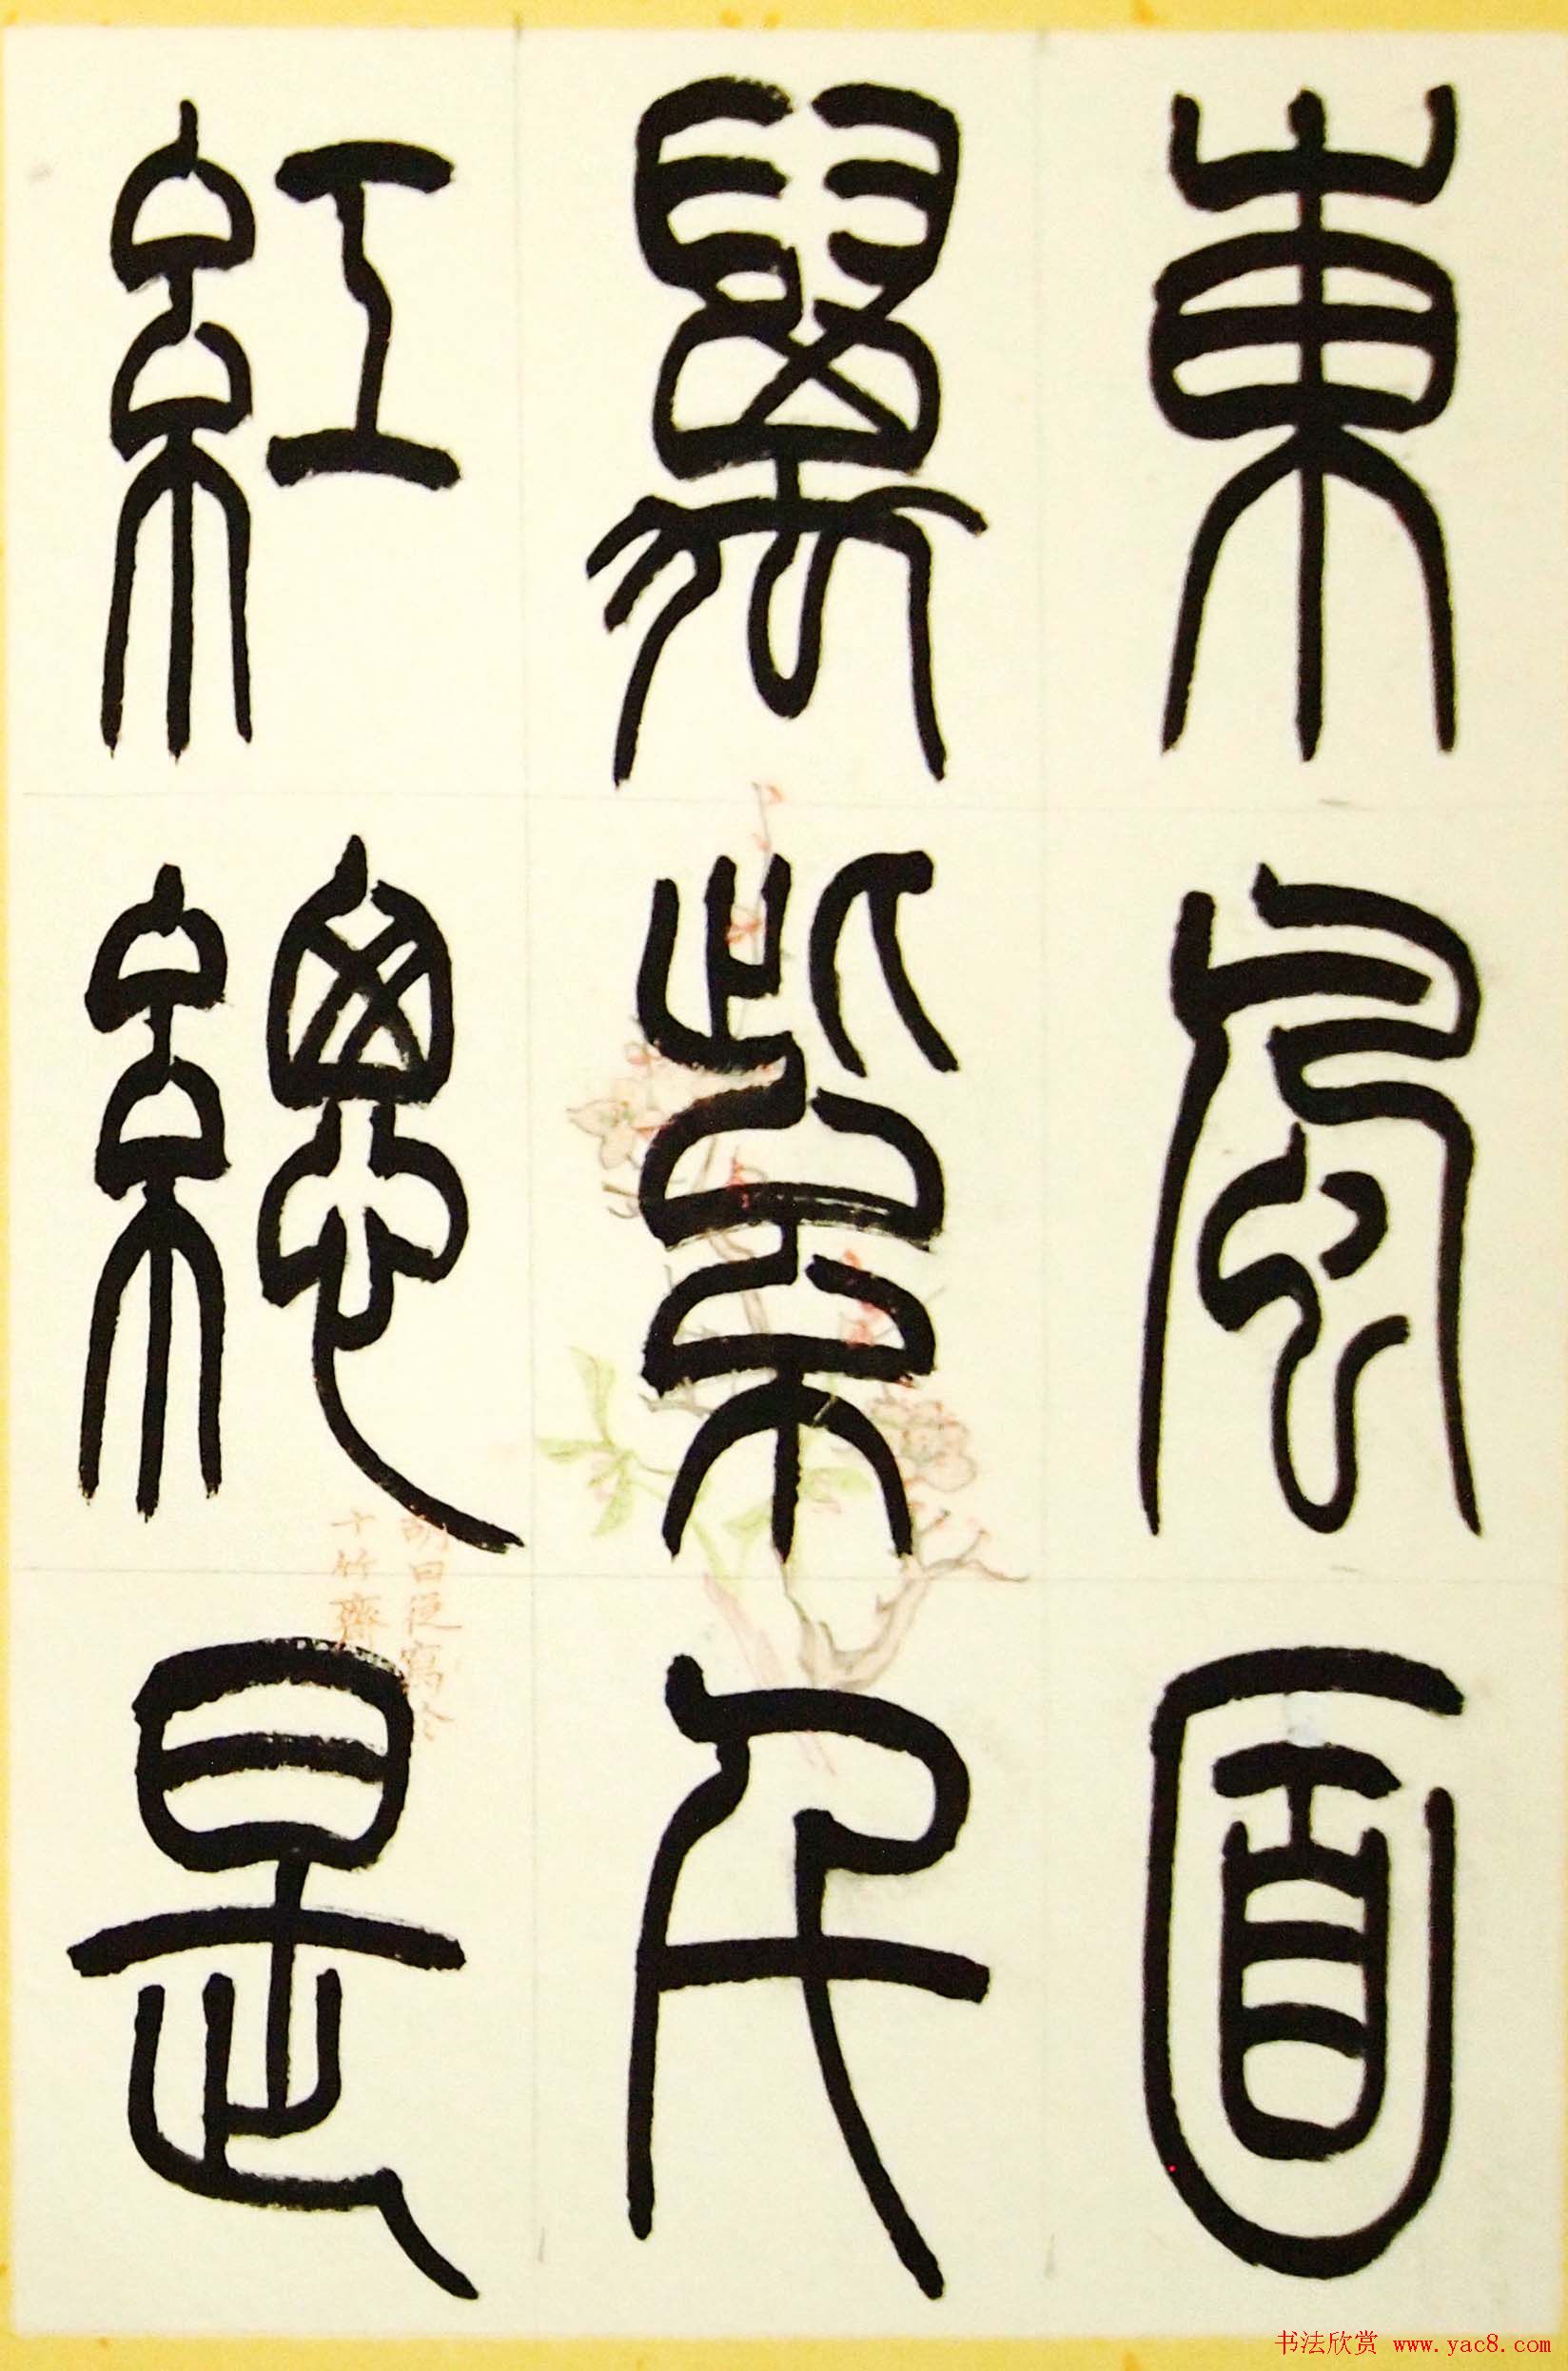 東風面
萬紫千
紅總是
胡曰從寫於
十竹齋
书法欣赏 www.yac8.com